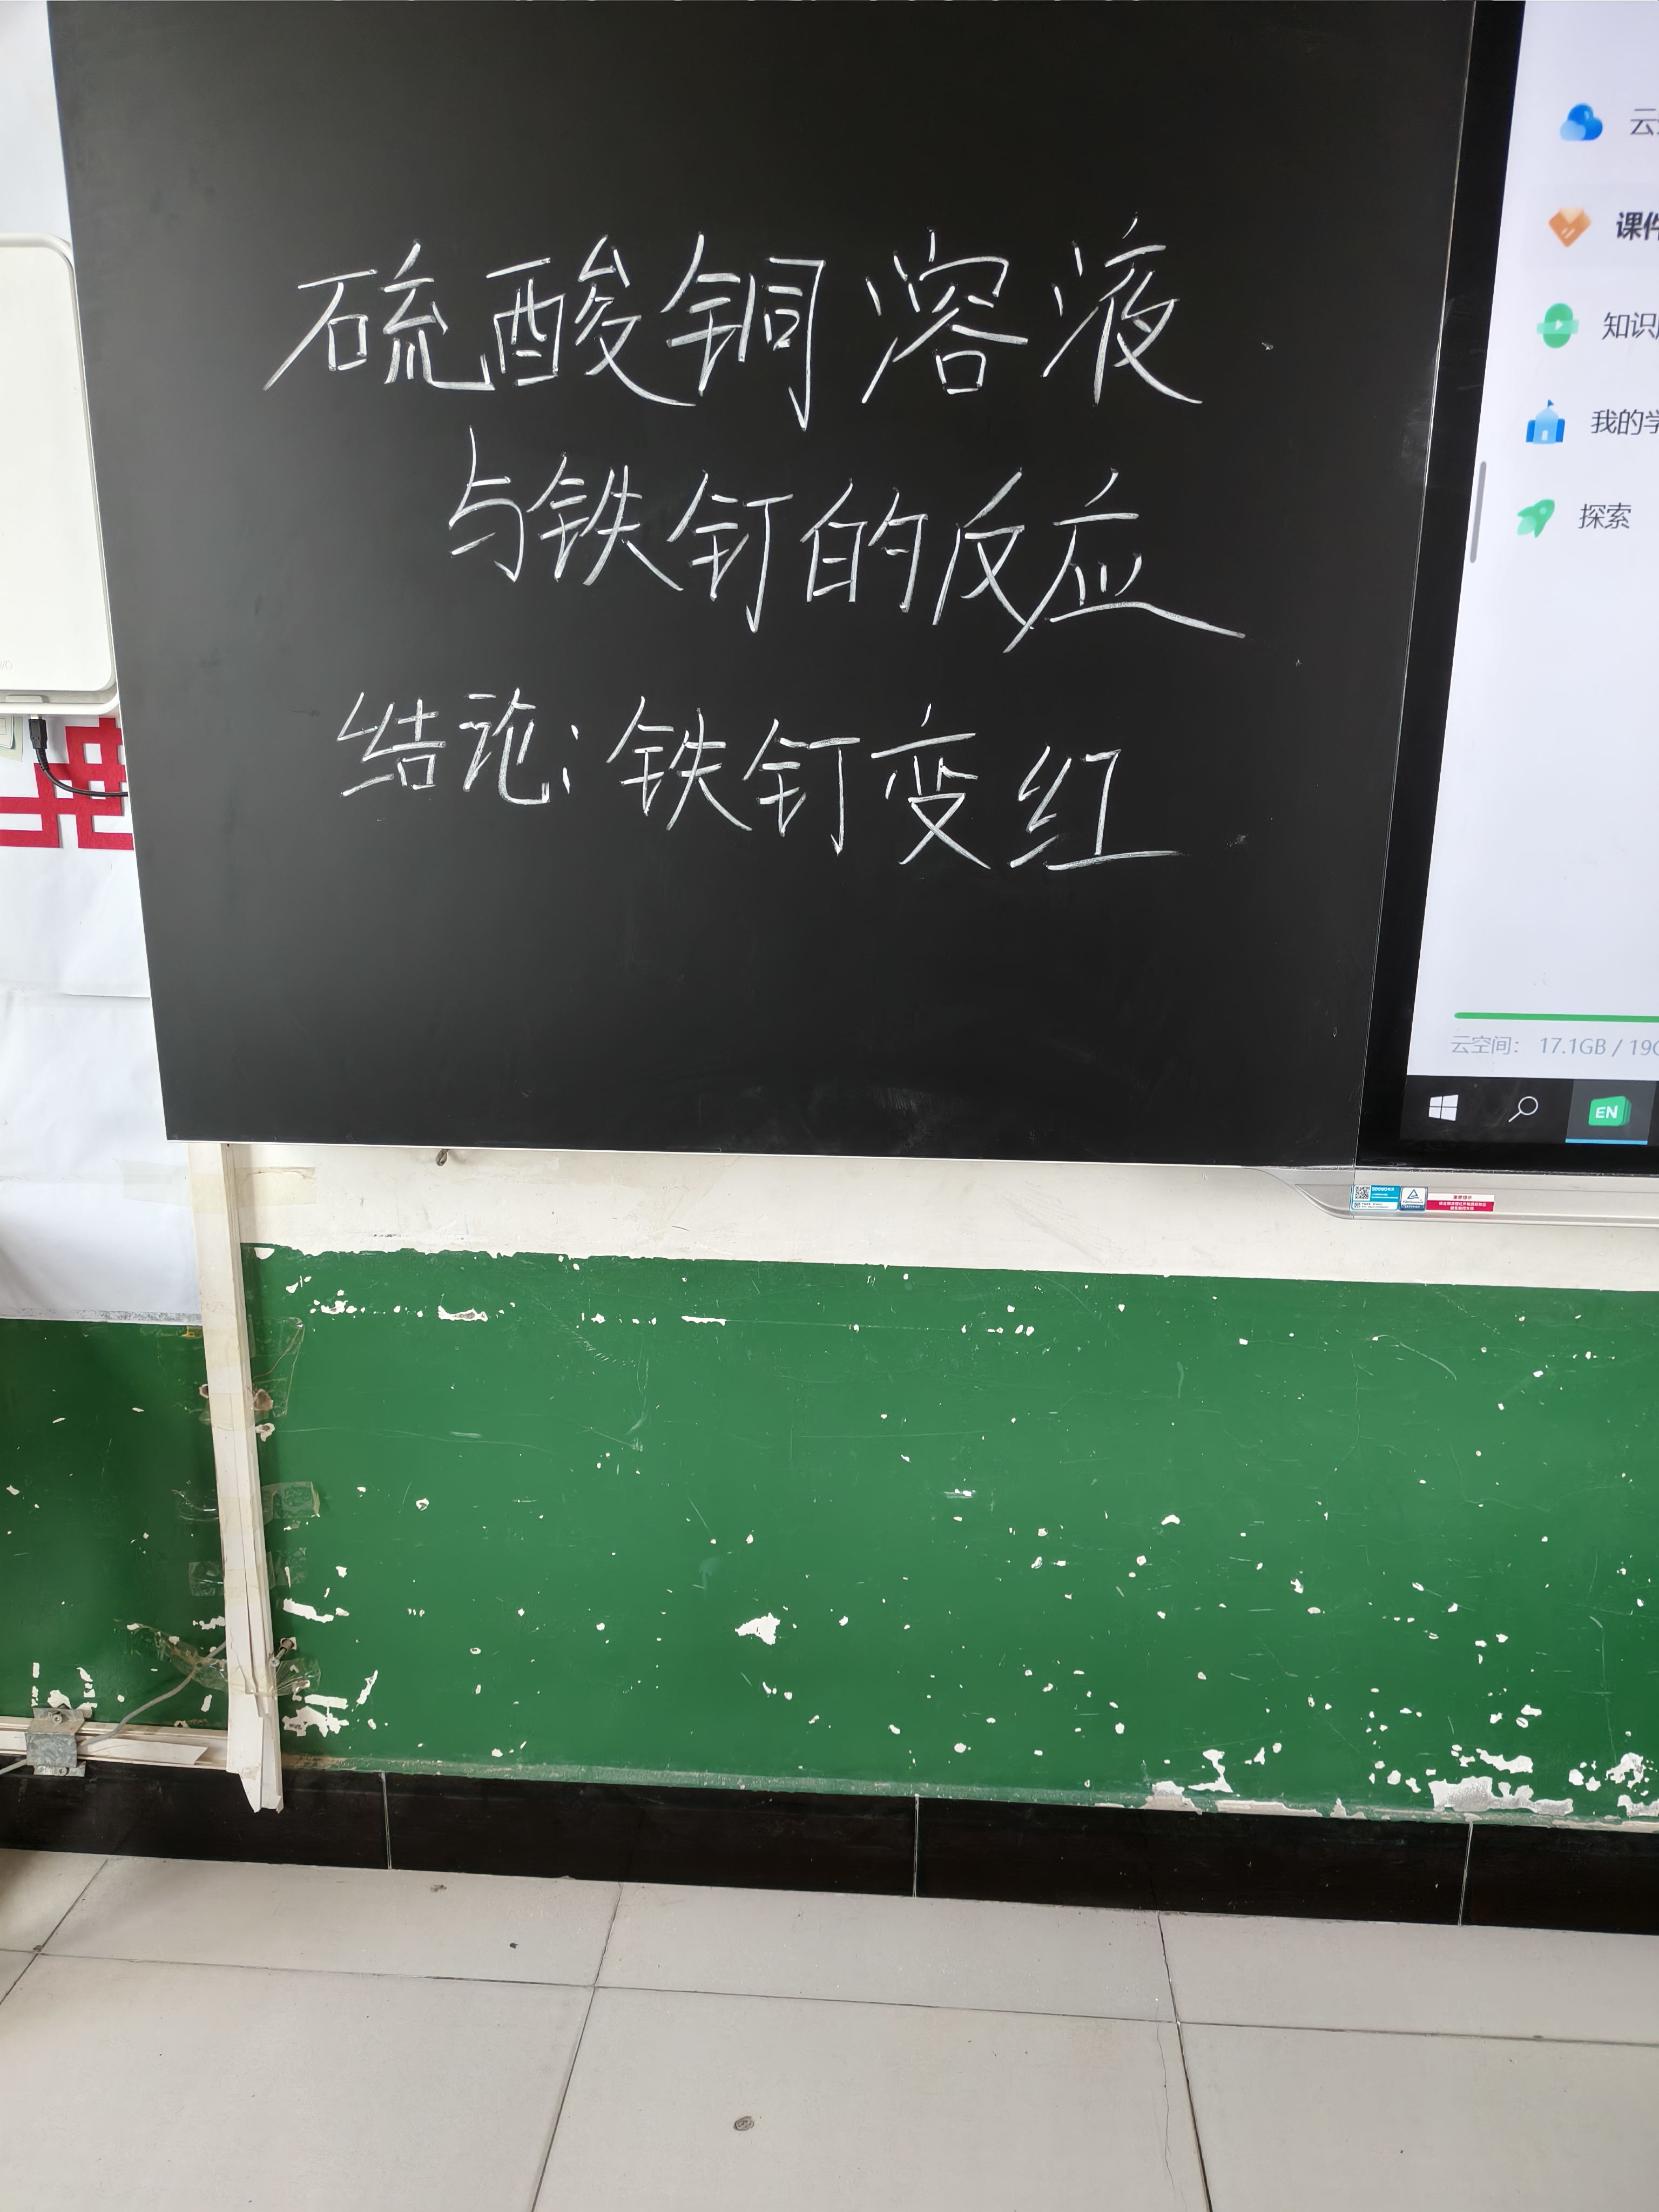 硫酸铜溶液
与铁钉的反应
结论:铁钉变红
课件
我的学
探索
云空间: 17.1GB / 19G
EN